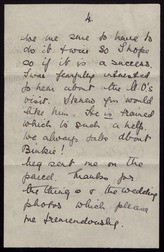 4.
we are sure to have to
do it twice so I hope
so if it is a success.
I was fearfully interested
to hear about the M.O's
visit. I knew you would
like him. He is trained
which is such a help.
We always talk about
Binkie!
Meg sent me on the
parcel. Thanks for
the things & the wedding
photos which please
me tremendously.